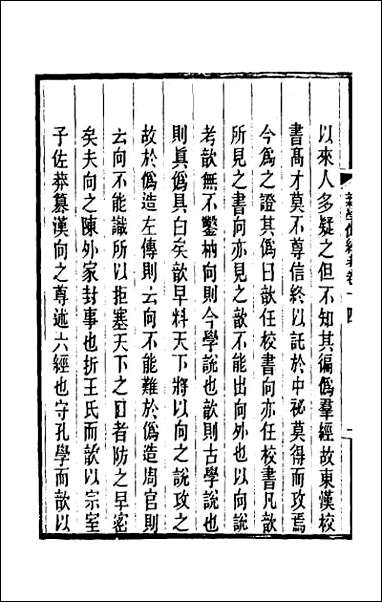 以來人多疑之但不知其徧偽羣經故東漢校
書高才莫不尊信終以託於中祕莫得而攻焉
今為之證其偽曰歆任校書向亦任校書凡歆
所見之書向亦見之歆不能出向外也以向說
考歆無不鑿枘向則今學說也歆則古學說也
則真偽具白矣歆早料天下將以向之說攻之
故於偽造左傳則云向不能難於偽造周官則
云向不能識所以拒塞天下之口者防之早密
矣夫向之陳外家封事也折王氏而歆以宗室
子佐莽篡漢向之尊述六經也守孔學而歆以
新學偽經考卷十四